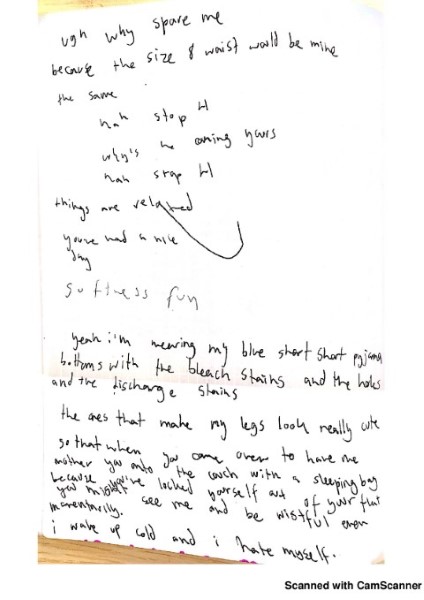 ugh why spare me
because the size & waist would be mine
the same
nah stop it
why's he coming yours
nah stop it
things are relaxed
you've had a nice
day
softness fun
yeah i'm wearing my blue short short pyjama
bottoms with the bleach stains and the holes
and the discharge stains
the ones that make my legs look really cute
so that when you come over to have me
mother you onto the couch with a sleeping bag
because you've locked yourself out of your flat
you might see me and be wistful even
momentarily.
i wake up cold and i hate myself.
Scanned with CamScanner